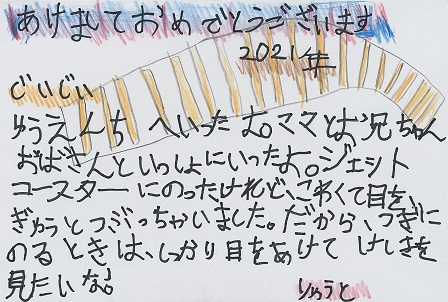 あけましておめでとうございます
2021年
じいじい
ゆうえんちへいったよ。ママとお兄ちゃん
おばさんといっしょにいったよ。ジェット
コースターにのったけれど、こわくて目を、
ぎゅうとつぶっちゃいました。だから、つぎに
のるときは、しっかり目をあけてけしきを
見たいな。
りゅうと